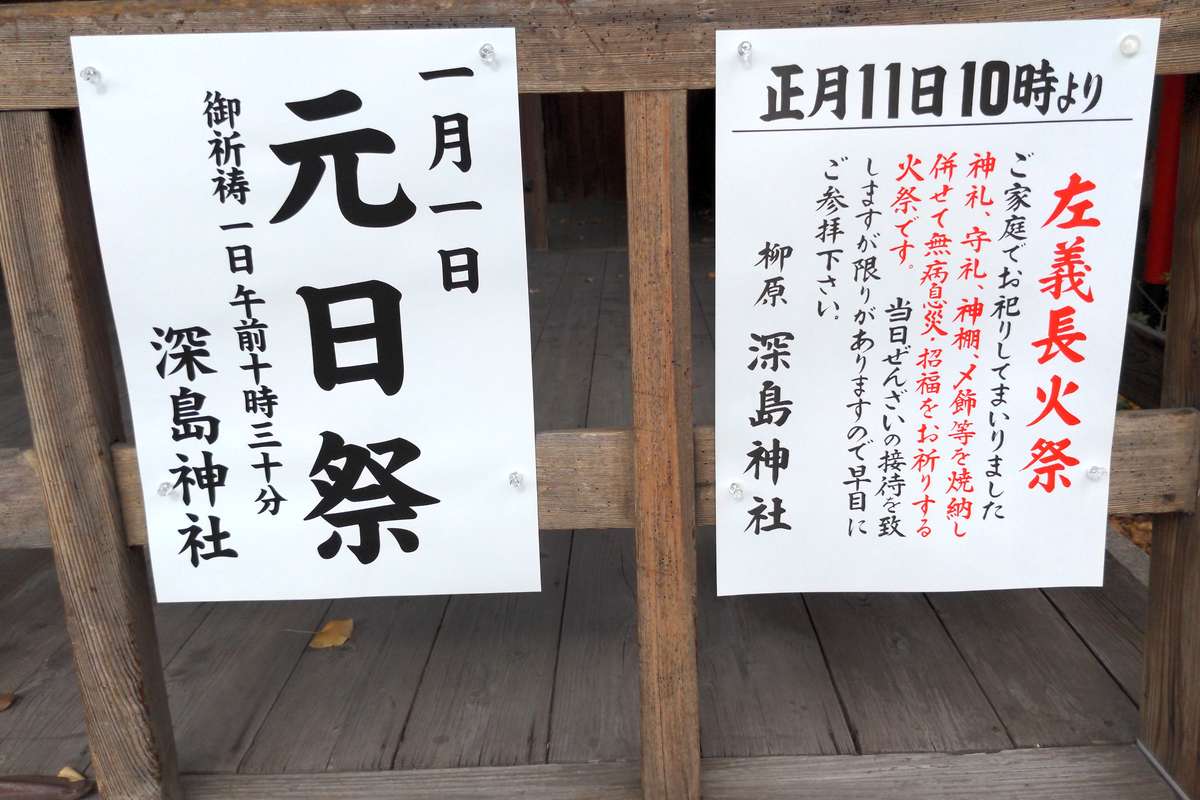 一月一日
元日祭
御祈祷 一日午前十時三十分
深島神社
正月11日10時より
左義長火祭
ご家庭でお祀りしてまいりました
神札、守礼、神棚、〆飾等を焼納し
併せて無病息災・招福をお祈りする
火祭です。
当日ぜんざいの接待を致
しますが限りがありますので早目に
ご参拝下さい。
柳原 深島神社